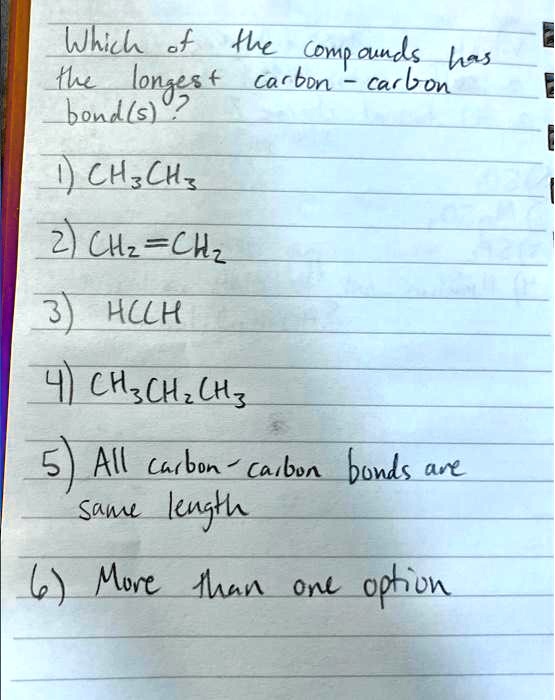 Which of the compounds has
the longest carbon - carbon
bond(s)?
1) CH₃CH₃
2) CH₂=CH₂
3) HCCH
4) CH₃CH₂CH₃
5) All carbon-carbon bonds are
same length
6) More than one option